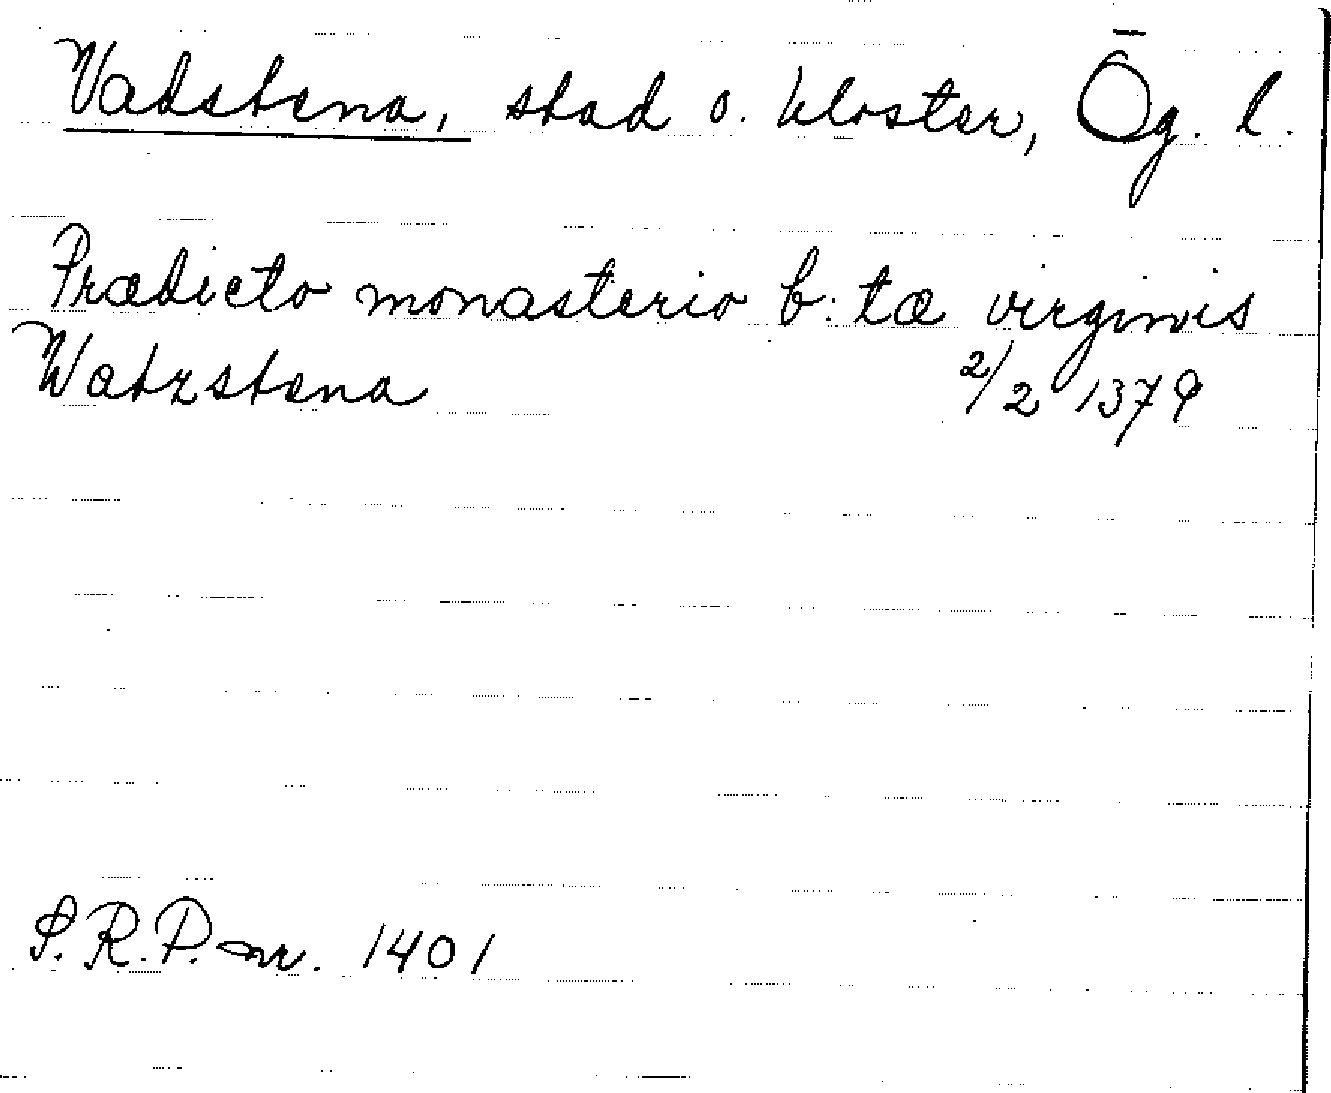 Vadstena, stad o. kloster, Ög. l.
Prædicto monasterio b:tæ virginis
Watzstena 2/2 1379
S.R.P. nr. 1401